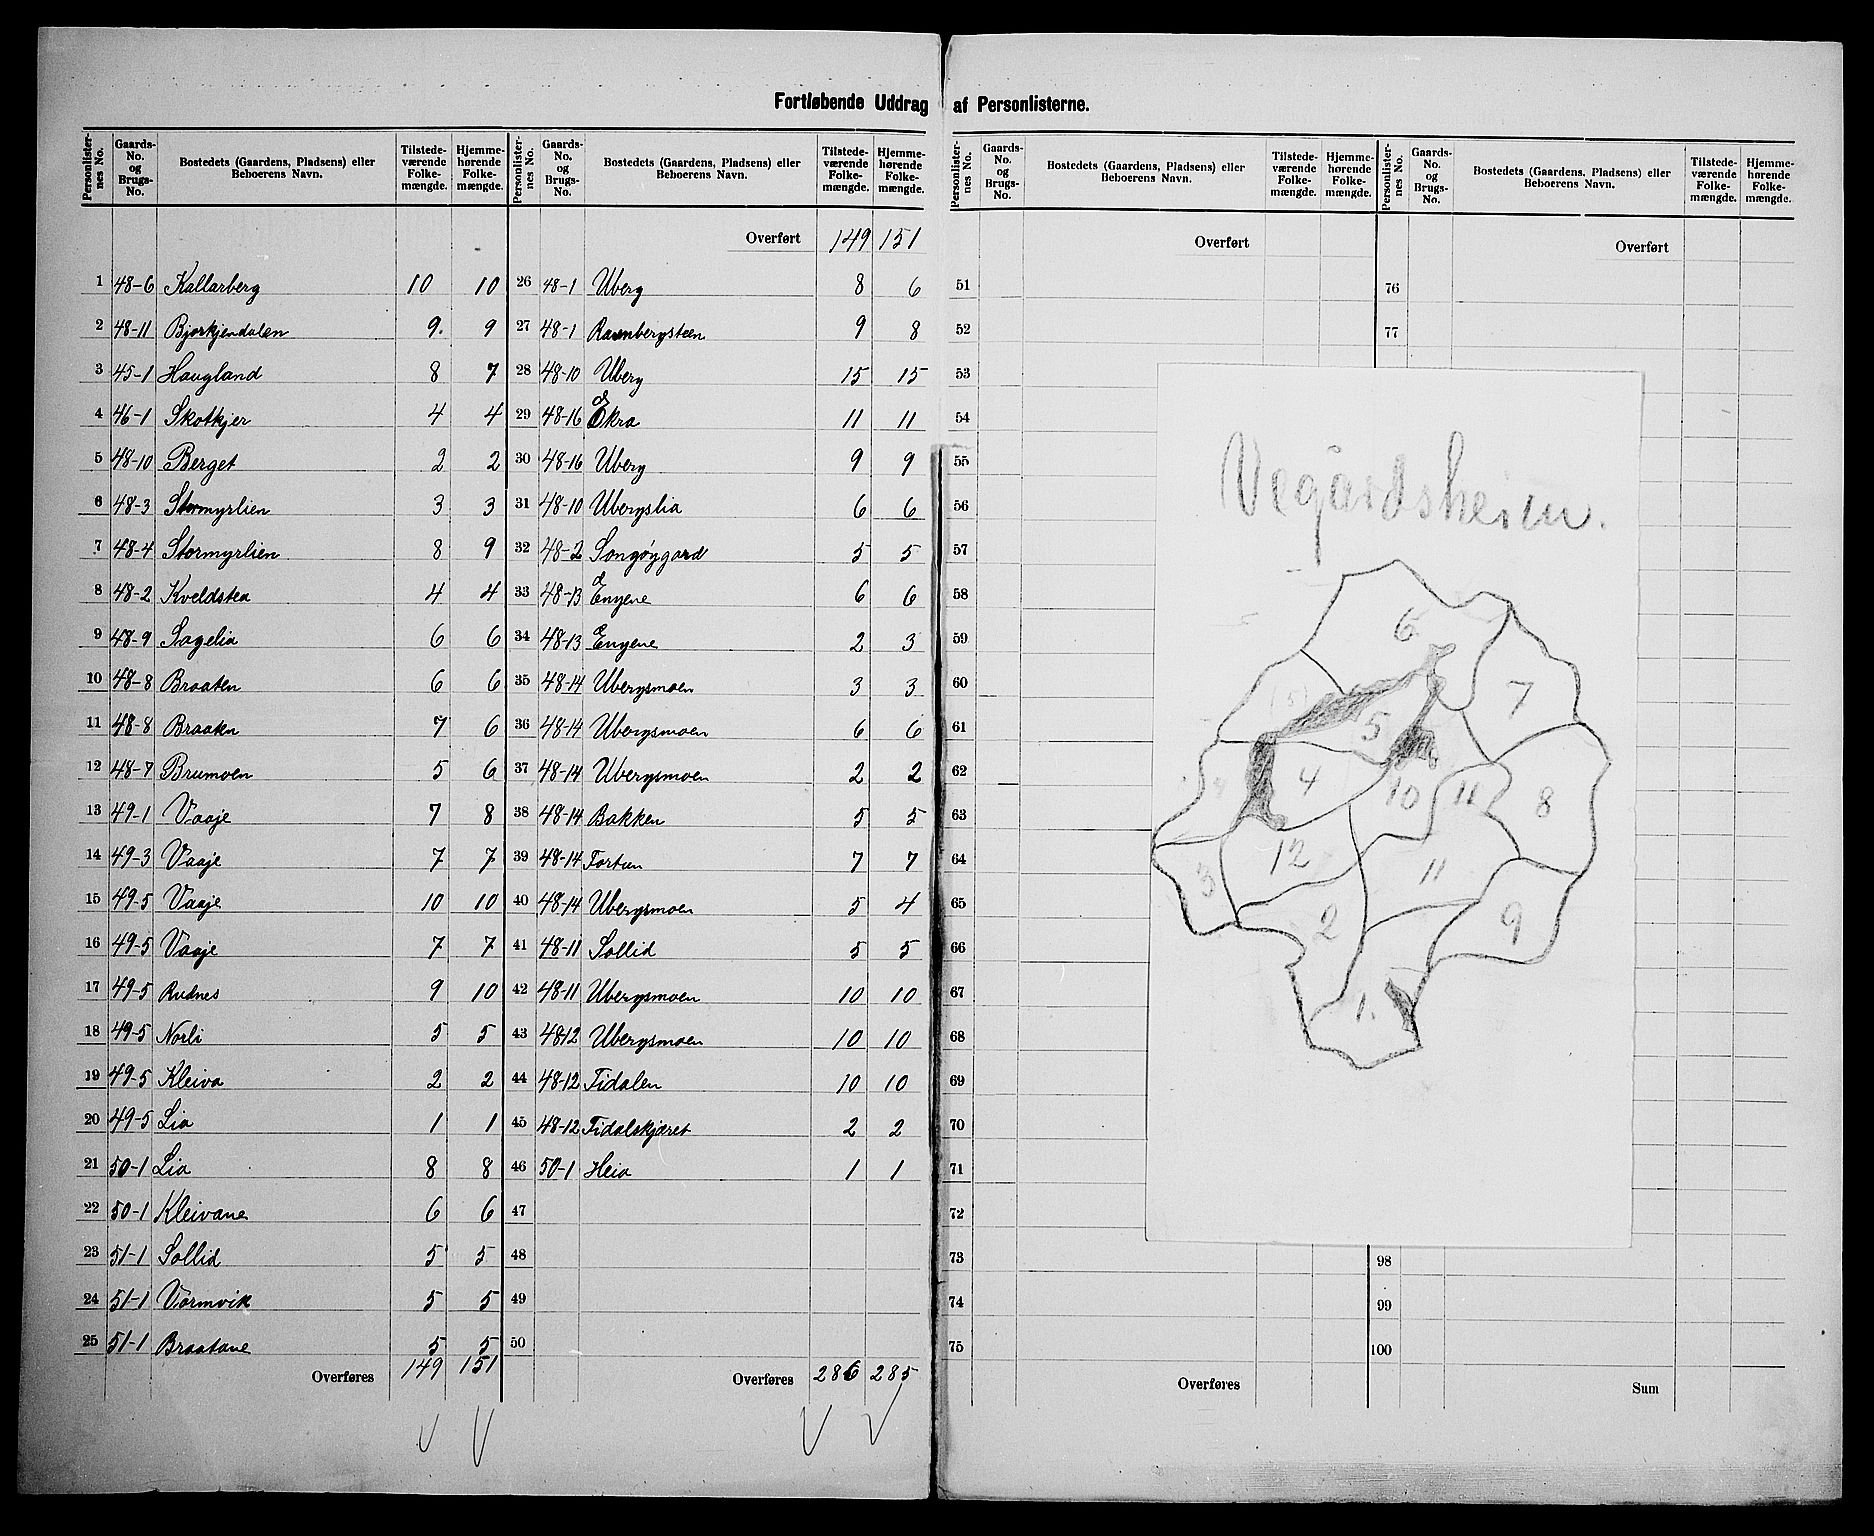 Fortløbende Uddrag af Personlisterne.
Personlisternes No. Gaards-No. og Brugs-No. Bostedets (Gaardens, Pladsens) eller Beboerens Navn. Tilstedeværende Folkemængde. Hjemmehørende Folkemængde.
1 48-6 Kallarberg 10 10
2 48-11 Bjorkjendalen 9. 9
3 45-1 Haugland 8 7
4 46-1 Skotkjer 4 4
5 48-10 Berget 2 2
6 48-3 Stormyrlien 3 3
7 48-4 Stormyrlien 8 9
8 48-2 Kveldstea 4 4
9 48-9 Sagelia 6 6
10 48-8 Braaten 6 6
11 48-8 Braaten 7 6
12 48-7 Brumoen 5 6
13 49-1 Vaaje 7 8
14 49-3 Vaaje 7 7
15 49-5 Vaaje 10 10
16 49-5 Vaaje 7 7
17 49-5 Rudnes 9 10
18 49-5 Norli 5 5
19 49-5 Kleiva 2 2
20 49-5 Lia 1 1
21 50-1 Lia 8 8
22 50-1 Kleivane 6 6
23 51-1 Sollid 5 5
24 51-1 Vormvik 5 5
25 51-1 Braatane 5 5
Overføres 149 151
Personlisternes No. Gaards-No. og Brugs-No. Bostedets (Gaardens, Pladsens) eller Beboerens Navn. Tilstedeværende Folkemængde. Hjemmehørende Folkemængde.
Overført 149 151
26 48-1 Uberg 8 6
27 48-1 Ravnbergsteen 9 8
28 48-10 Uberg 15 15
29 48-16 Ekra 11 11
30 48-16 Uberg 9 9
31 48-10 Ubergslia 6 6
32 48-2 Songøygard 5 5
33 48-13 Engene 6 6
34 48-13 Engene 2 3
35 48-14 Ubergsmoen 3 3
36 48-14 Ubergsmoen 6 6
37 48-14 Ubergsmoen 2 2
38 48-14 Bakken 5 5
39 48-14 Tortun 7 7
40 48-14 Ubergsmoen 5 4
41 48-11 Sollid 5 5
42 48-11 Ubergsmoen 10 10
43 48-12 Ubergsmoen 10 10
44 48-12 Tidalen 10 10
45 48-12 Tidalskjæret 2 2
46 50-1 Heia 1 1
47
48
49
50
Overføres 286 285
Personlisternes No. Gaards-No. og Brugs-No. Bostedets (Gaardens, Pladsens) eller Beboerens Navn. Tilstedeværende Folkemængde. Hjemmehørende Folkemængde.
Overført
51
52
53
54
55
56
57
58
59
60
61
62
63
64
65
66
67
68
69
70
71
72
73
74
75
Overføres
Personlisternes No. Gaards-No. og Brugs-No. Bostedets (Gaardens, Pladsens) eller Beboerens Navn. Tilstedeværende Folkemængde. Hjemmehørende Folkemængde.
Overført
76
77
98
99
100
Sum
Vegårdsheien.
6
7
5
4
10
11
8
3
12
11
2
9
1.